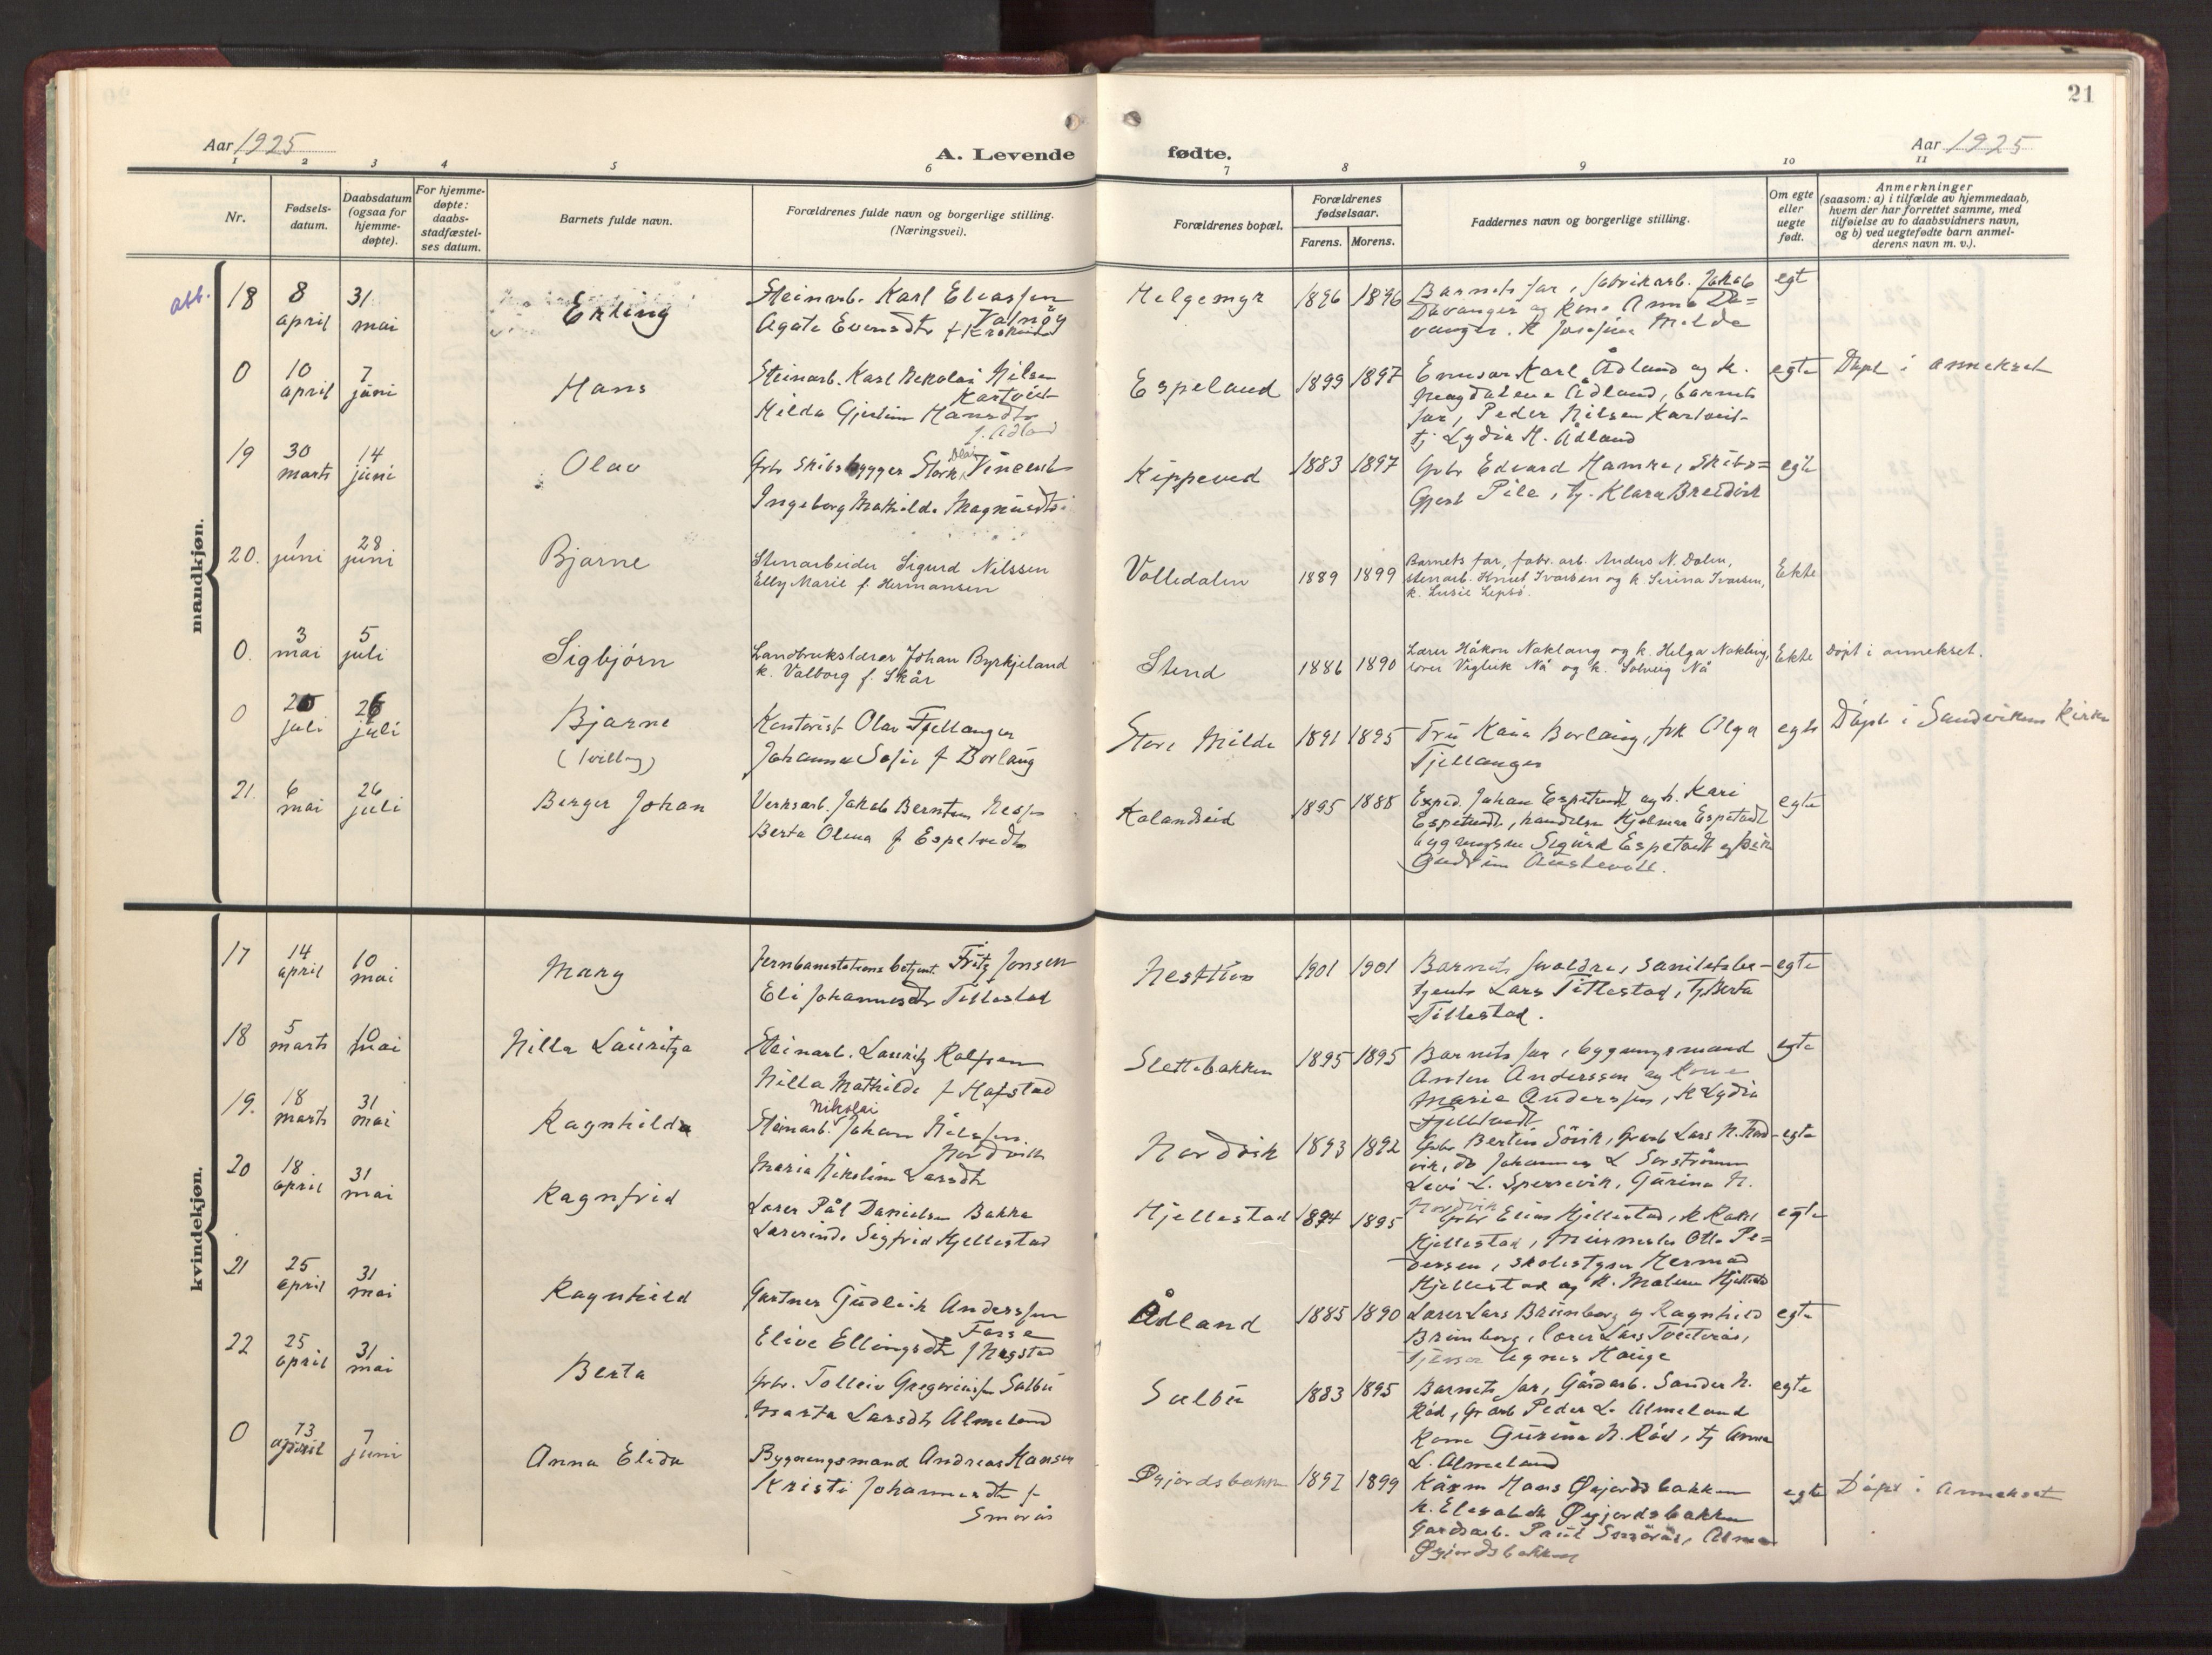 21
Aar 1925
A. Levende
fødte.
Aar 1925
1 2 3 4 5 6 7 8 9 10 11
Nr.
Fødsels-
datum.
Daabsdatum
(ogsaa for
hjemme-
døpte).
For hjemme-
døpte:
daabs-
stadfæstel-
ses datum.
Barnets fulde navn.
Forældrenes fulde navn og borgerlige stilling.
(Næringsvei).
Forældrenes bopæl.
Forældrenes
fødselsaar.
Farens. Morens.
Faddernes navn og borgerlige stilling.
Om egte
eller
uegte
født.
Anmerkninger
(saasom: a) i tilfælde av hjemmedaab,
hvem der har forrettet samme, med
tilføielse av to daabsvidners navn,
og b) ved uegtefødte barn anmel-
derens navn m. v.).
mandkjøn.
18
8
april
31
mai
Erling
Steinarb. Karl Eliassen
Agate
Helgemyr
1896 1896
Barnets far, fabrikarb. Jakob
Davanger og kone Anna Da=
vanger. K Josefine Milde
egt
0
10
april
7
juni
Hans
Steinarb. Karl Nikolai Nilsen
Kartveit
Hilda Gjertine Hansdtr
f. Ådland
Espeland
1899 1897
Karl Ådland og k.
Magdalena Ådland, barnets
far, Peder Nilsen Kartveit
tj. Lydia H. Ådland
egte
Døpt i annekset
19
30
marts
14
juni
Olav
Gbr skibsbygger Olai Vincent
Ingeborg Mathilde Magnusdtr
Kippeved
1883 1897
Gbr Edvard Hamre, skibs=
Pile, tj. Klara Breidvik
egte
20.
1
juni
28
juni
Bjarne
Stenarbeider Sigurd Nilssen
Elly Marie f. Hermansen
Volledalen
1889 1899
Barnets far, fabr. arb. Anders N. Dalen,
stenarb. Knut Ivarsen og k. Serina Ivarsen,
k. Lusie Lepsø.
Ekte
0.
3
mai
5
juli
Sigbjørn
Landbrukslærer Johan Byrkjeland
k. Valborg f. Skår
Stend
1886 1890
Lærer Håkon Nakling og k. Helga Nakling,
lærer Vigleik Nå og k. Solveig Nå
Ekte
Døpt i annekset.
0
juli
26
juli
Bjarne
(tvilling)
Kontorist Olav Fjellanger
Johanna Sofie f Borlaug
Store Milde
1891 1895
Fru Kaia Borlaug, frk Olga
Fjellanger
egte
Døpt i Sandvikens kirke
21.
6
mai
26
juli
Berger Johan
Verksarb. Jakob Berntsen
Berta Olena f Espetvedt
Kalandseid
1895 1888
Exped. Johan Espetvedt og h. Kari
Espetvedt, handelsm Hjalmar Espetvedt
bygningsm Sigurd Espetvedt og
Gudrun Austevoll.
egte
kvindekjøn.
17
14
april
10
mai
Mary
Jernbanestations betjent. Fritz Jonsen
Eli Johannesdtr Tillestad
Nesttun
1901 1901
Barnets foreldre, sanitetsbe-
tjent Lars Tillestad, tj. Berta
Tillestad.
egte
18
5
marts
10
mai
Nilla Lauritza
Steinarb. Lauritz Rolfsen
Nilla Mathilde f Hafstad
Slettebakken
1895 1895
Barnets far, bygningsmand
Anton Anderssen og kone
Marie Anderssen, K Lydia
Fjelltvedt
egte
19.
18
marts
31
mai
Ragnhilda
Nikolai
Steinarb. Johan Nilssen
Nordvik
Maria Nikoline Larsdtr
Nordvik
1893 1892
Gbr Bertin Søvik, Gaarb Lars N. Nord-
vik, do Johannes L Sørstrømmen
Levi L. Sperrevik, Gurina N.
Nordvik
egte
20
18
april
31
mai
Ragnfrid
Lærer Pål Danielsen Bakke
Lærerinde Sigfrid Hjellestad
Hjellestad
1894 1895
Gbr Elias Hjellestad, K Rakel
Hjellestad, Murmester Otto Pe=
dersen, skolestyrer Hermod
Hjellestad og K. Malene Hjellestad
egte
21
25
april
31
mai
Ragnhild
Gartner Gudleik Anderssen
Fosse
Elive Ellingsdtr f Nygstad
Ådland
1885 1890
Lærer Lars Brunborg og Ragnhild
Brunborg, lærer Lars Tveiterås,
Agnes Hauge
egte
22
25
april
31
mai
Berta
Gbr. Tolleiv Gregoriussen Salbu
Marta Larsdtr Almeland
Salbu
1883 1895
Barnets far, Gårdarb. Sander N.
Rød, Gårdarb Peder L. Almeland
Kone Gurina N. Rød, tj Anna
L. Almeland
egte
0
13
april
7
juni
Anna Elida
Bygningsmand Andreas Hansen
Kristi Johannesdtr f
Smørås
Øvjordsbakken
1897 1899
Hans Øvjordsbakken
k. Elisabeth Øvjordsbakken
Gardsarb. Paul Smørås, Alma
Øvjordsbakken
egte
Døpt i Annekset